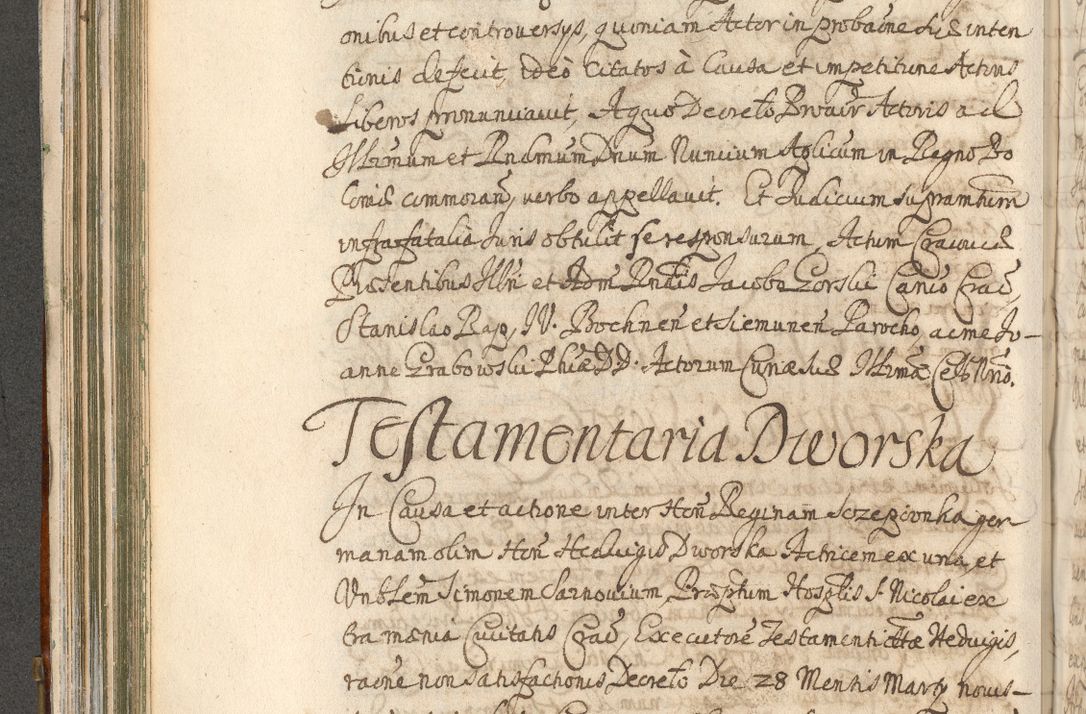 onibus et controversys, quoniam Actor in probaōne suæ inten
tionis defecit, ideò Citatos à Causa et impetitione Actoris
Liberos pronunciavit, A quo Decreto Procūr Actoris ad
Illrimum et Rndmum Dnum Nuncium Aplicum in Regno Po
loniæ commoran̄, verbo appellavit. Et Judicium supramtum
infra fatalia Juris obtulit se responsurum, Actum Cracoviæ
Præsentibus Illri et Adm̄ Rndis Jacobo Gorski Canco Crac̄,
Stanislao Rap, IV. Bochnen̄ et Siemunen̄ Parocho, ac me Jo-
anne Grabowski Phiæ D D. Actorum Curiæ suæ Illrmæ Cels Nrio.
Testamentaria Dworska
In Causa et actione inter Hon̄ Reginam Sczepionka ger
manam olim Hon̄ Hedvigis Dworska Actricem ex una, et
Vnblem̄ Simonem Sarnovium, Præptum Hosptlis S. Nicolai ex
tra mænia Civitatis Crac̄, Executore Testamenti ettæ Hedvigis,
raōne non satisfactionis Decreto Die 28 Mensis Marty novis-